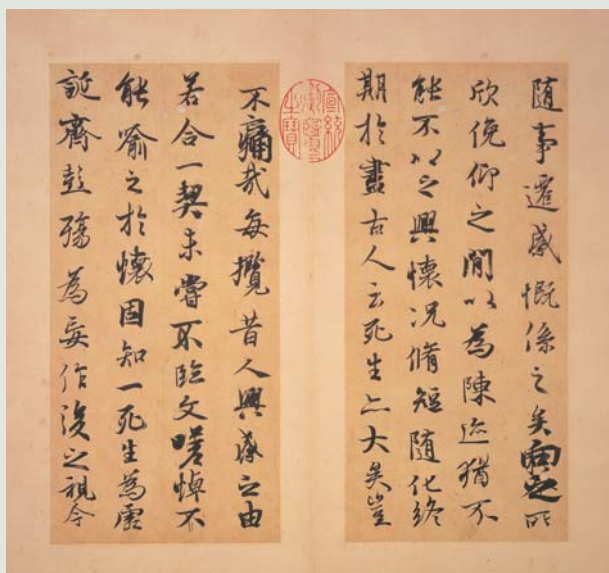 随事遷感慨係之矣向之所
欣俛仰之間以為陳迹猶不
能不以之興懷況脩短随化終
期於盡古人云死生亦大矣豈
宣統御覽之寶
不痛哉每攬昔人興感之由
若合一契未嘗不臨文嗟悼不
能喻之於懷固知一死生為虛
誕齊彭殤為妄作後之視今